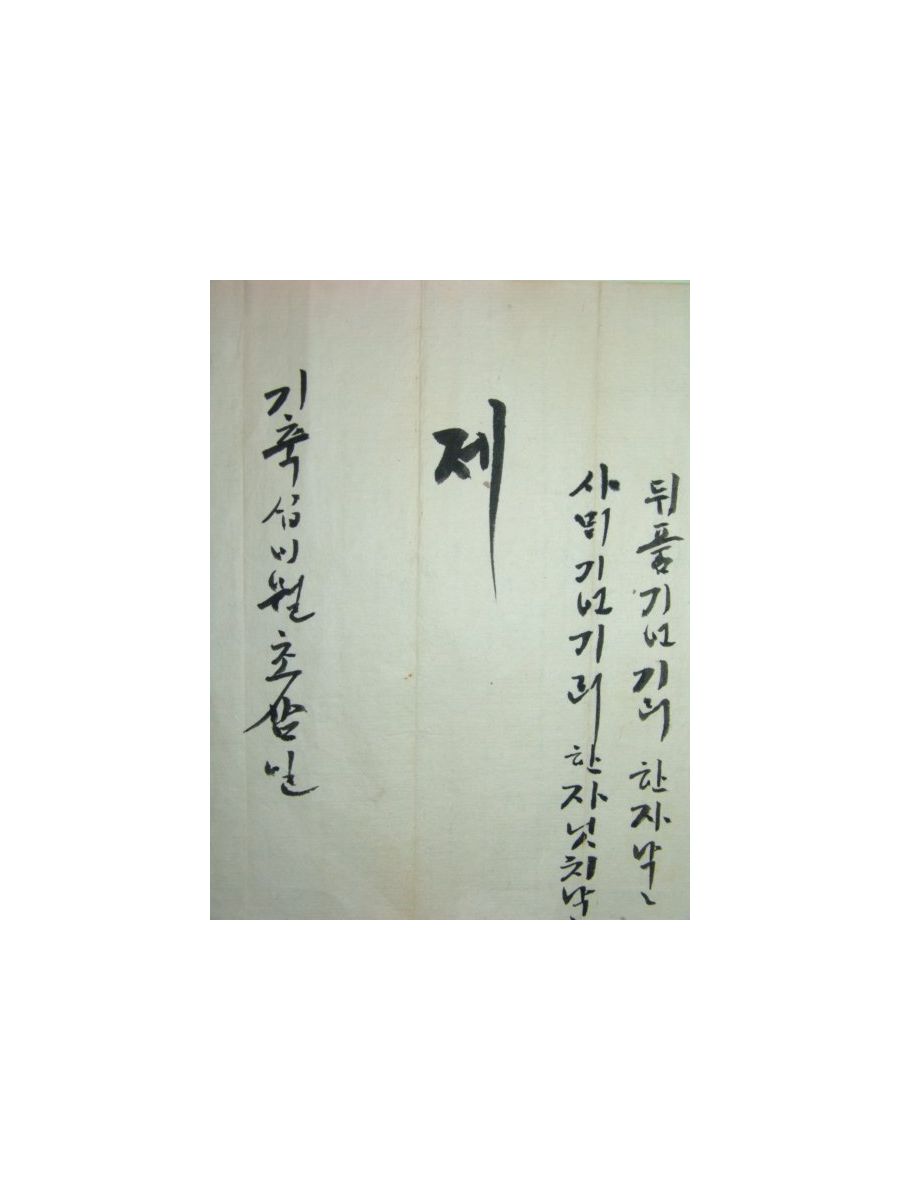 뒤품기년기리 한자낙
사믜기년기리 한자넛치낙
제
기축십이월초삼일